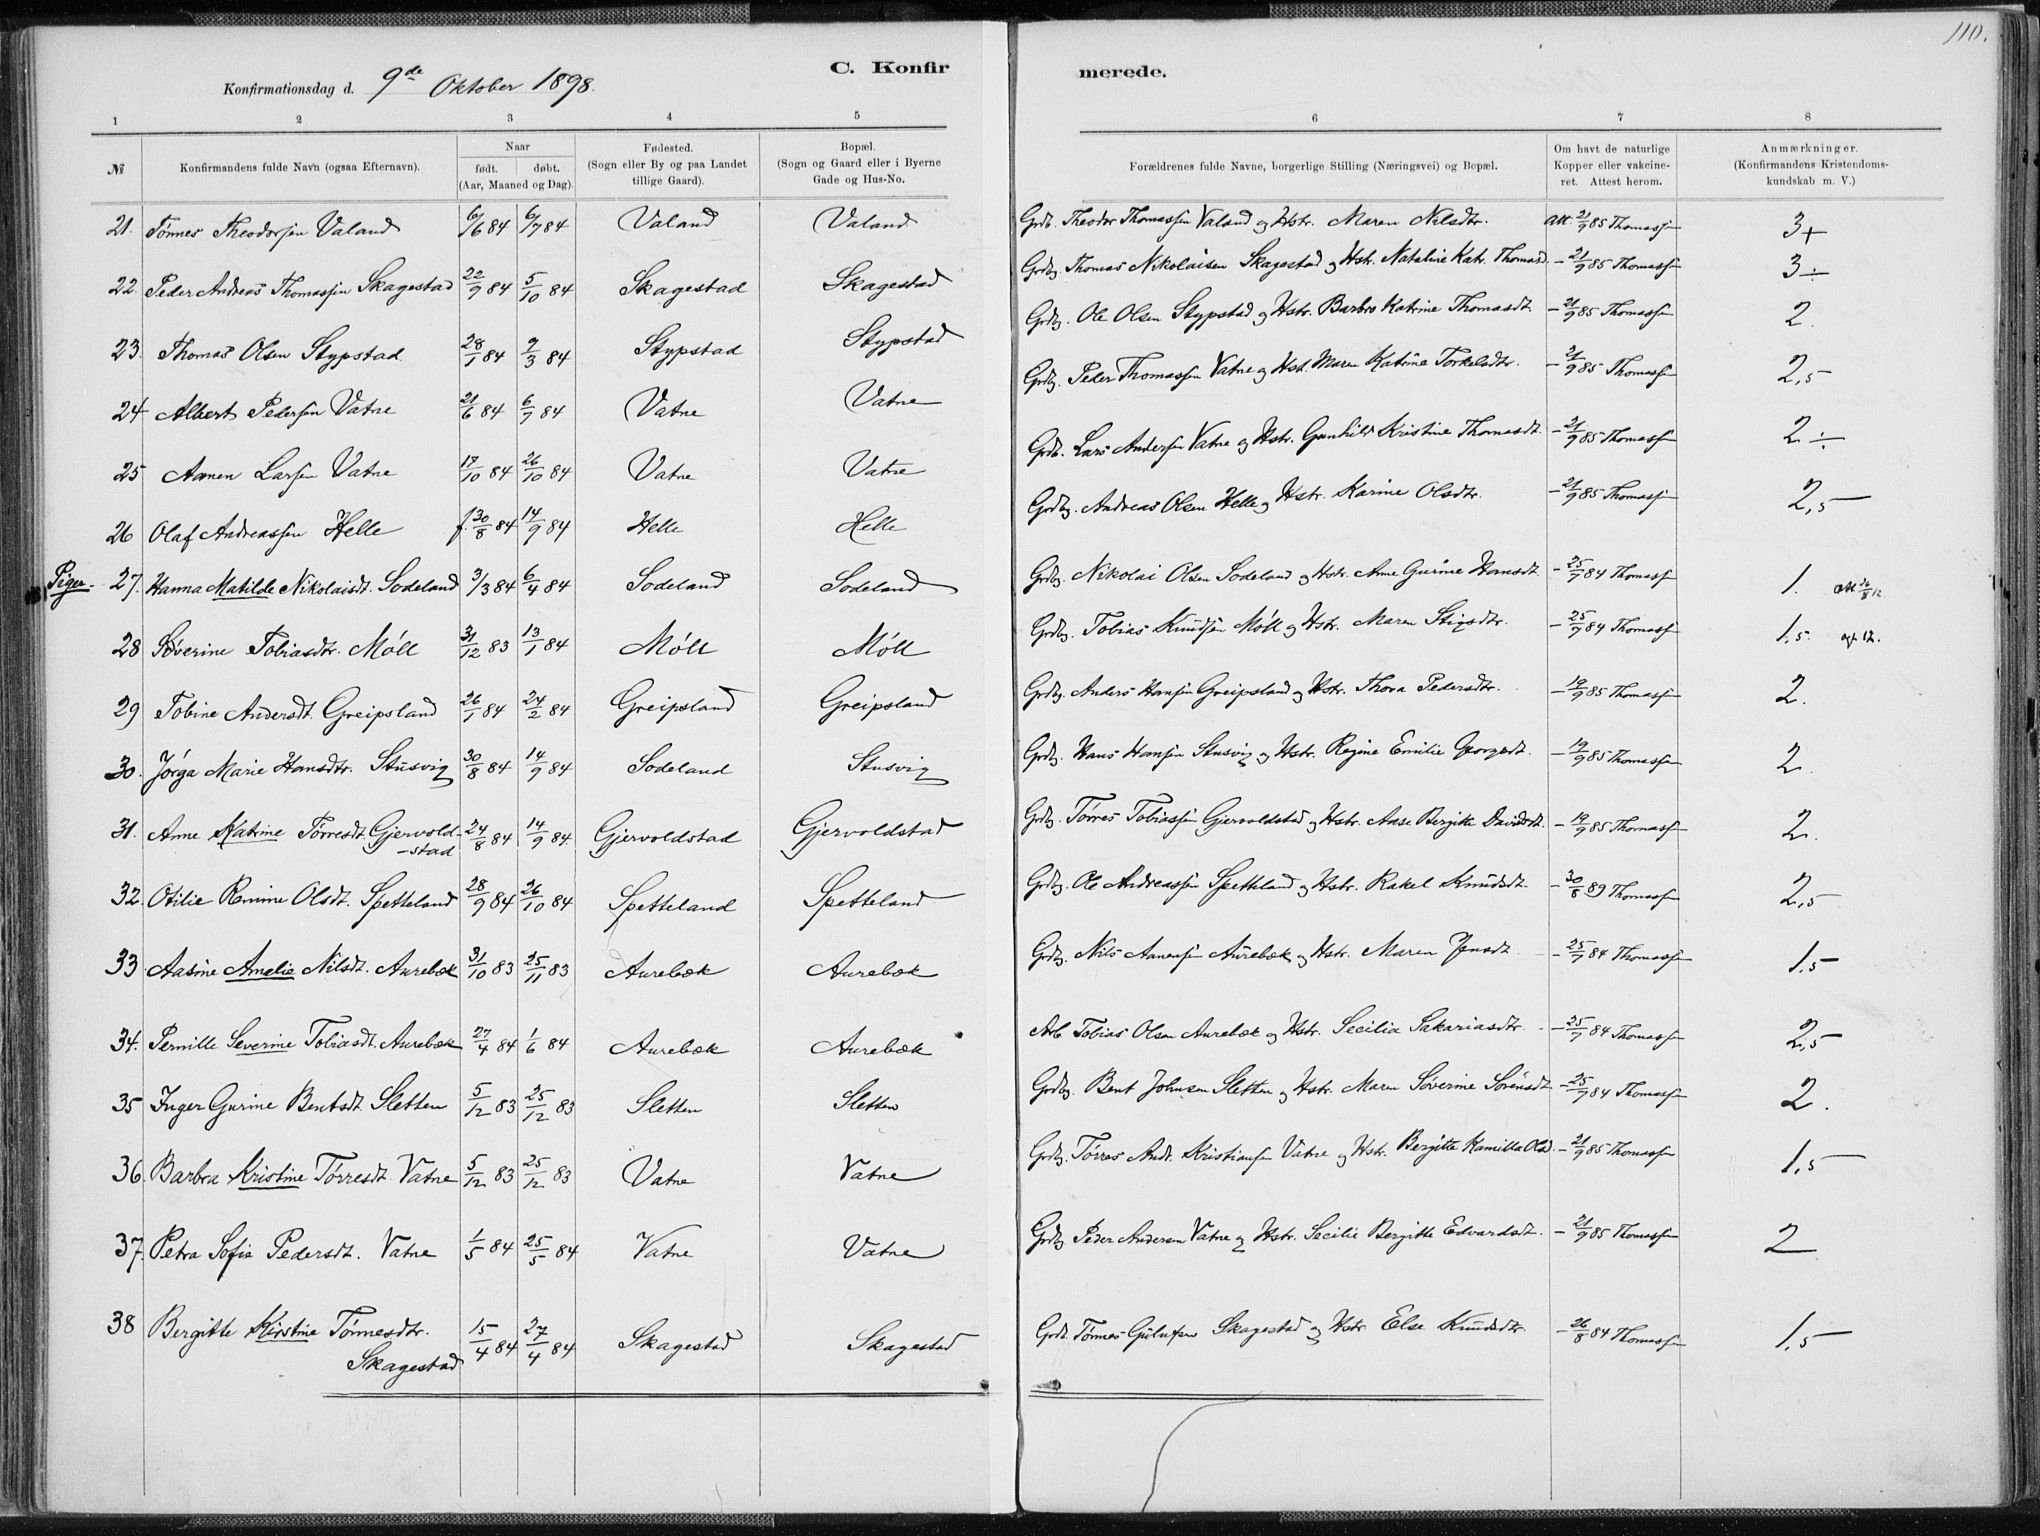 110.
C. Konfir merede.
Konfirmationsdag d. 9de Oktober 1898.
1 2 3 4 5 6 7 8
№ Konfirmandens fulde Navn (ogsaa Efternavn). Naar født. døbt. (Aar, Maaned og Dag). Fødested. (Sogn eller By og paa Landet tillige Gaard). Bopæl. (Sogn og Gaard eller i Byerne Gade og Hus-No. Forældrenes fulde Navne, borgerlige Stilling (Næringsvei) og Bopæl. Om havt de naturlige Kopper eller vakcineret. Attest herom. Anmærkninger. (Konfirmandens Kristendomskundskab m. V.)
21. Tønnes Theodorsen Valand 6/6 84 6/7 84 Valand Valand Grdb. Theodor Thomassen Valand og Hstr. Maren Nilsdtr. Att. 21/9 85 Thomassen 3+
22. Peder Andreas Thomassen Skagestad 22/9 84 5/10 84 Skagestad Skagestad Grdbg. Thomas Nikolaisen Skagestad og Hstr. Nataline Katr. Thomasd. - 21/9 85 Thomassen 3÷
23. Thomas Olsen Stypstad 28/1 84 9/3 84 Stypstad Stypstad Grdbg. Ole Olsen Stypstad og Hstr. Barbro Katrine Thomasdt. - 21/9 85 Thomassen 2.
24 Albert Pedersen Vatne 21/6 84 6/7 84 Vatne Vatne Grdbg. Peder Thomassen Vatne og Hst. Maren Katrine Torkelsdtr. - 21/9 85 Thomassen 2,5
25 Aanen Larsen Vatne 17/10 84 26/10 84 Vatne Vatne Grdb. Lars Andersen Vatne og Hstr. Gunhild Kristine Thomasdt. - 21/9 85 Thomassen 2÷
26 Olaf Andreassen Helle f. 30/8 84 14/9 84 Helle Helle Grdbg. Andreas Olsen Helle og Hstr. Karine Olsdtr. - 21/9 85 Thomassen 2,5
Piger. 27. Hanna Matilde Nikolaisdt. Sodeland 3/3 84 6/4 84 Sodeland Sodeland Grdbg. Nikolai Olsen Sodeland og Hstr. Anne Gurine Hansdt. - 25/7 84 Thomassen 1.
28 Søverine Tobiasdtr. Møll 31/12 83 13/1 84 Møll Møll Grdbg. Tobias Knudsen Møll og Hstr. Maren Stigsdtr. - 25/7 84 Thomassen 1,5.
29 Tobine Andersdt. Greipsland 26/1 84 24/2 84 Greipsland Greipsland Grdbg. Anders Hansen Greipsland og Hstr. Thora Pedersdtr. - 19/9 85 Thomassen 2.
30. Jørga Marie Hansdtr. Stusvig 30/8 84 14/9 84 Sodeland Stusvig Grdbg. Hans Hansen Stusvig og Hstr. Regine Emilie Georgsdt. - 19/9 85 Thomassen 2.
31. Anne Katrine Tørresdt. Gjervold-stad 24/8 84 14/9 84. Gjervoldstad Gjervoldstad Grdbg. Tørres Tobiassen Gjervoldstad og Hstr. Aase Bergitte Davidsdt. - 19/9 85 Thomassen 2.
32. Otilie Romine Olsdt. Spetteland 28/9 84 26/10 84 Spetteland Spetteland Grdbg. Ole Andreassen Spetteland og Hstr. Rakel Knudsdt. - 30/8 89 Thomassen 2,5
33 Aasine Amalia Nilsdt. Aurebæk 31/10 83 25/11 83 Aurebæk Aurebæk Grdbg. Nils Aanensen Aurebæk og Hstr. Maren Jensdt. - 25/7 84 Thomassen 1,5
34. Pernille Severine Tobiasdt. Aurebæk 27/4 84 1/6 84 Aurebæk Aurebæk Arb. Tobias Olsen Aurebæk og Hstr. Secilia Sakariasdtr. - 25/7 84 Thomassen 2,5
35 Inger Gurine Bentsdt. Sletten 5/12 83 25/12 83 Sletten Sletten Grdbg. Bent Johnsen Sletten og Hstr. Maren Søverine Sørensdt - 25/7 84 Thomassen 2.
36. Barbra Kristine Tørresdt. Vatne 5/12 83 25/12 83 Vatne Vatne Grdbg. Tørres Andr. Kristiansen Vatne og Hstr. Bergitte Kamilla Olsd. - 21/9 85 Thomassen 1,5
37. Petra Sofie Pedersdt. Vatne 1/5 84 25/5 84 Vatne Vatne Grdbg. Peder Andersen Vatne og Hstr. Secilie Bergitte Edvardsdt. - 21/9 85 Thomassen 2
38 Bergitte Kirstine Tønnesdtr. Skagestad 15/4 84 27/4 84 Skagestad Skagestad Grdb. Tønnes Skagestad og Hstr. Else Knudsdtr. - 26/8 84 Thomassen 1,5